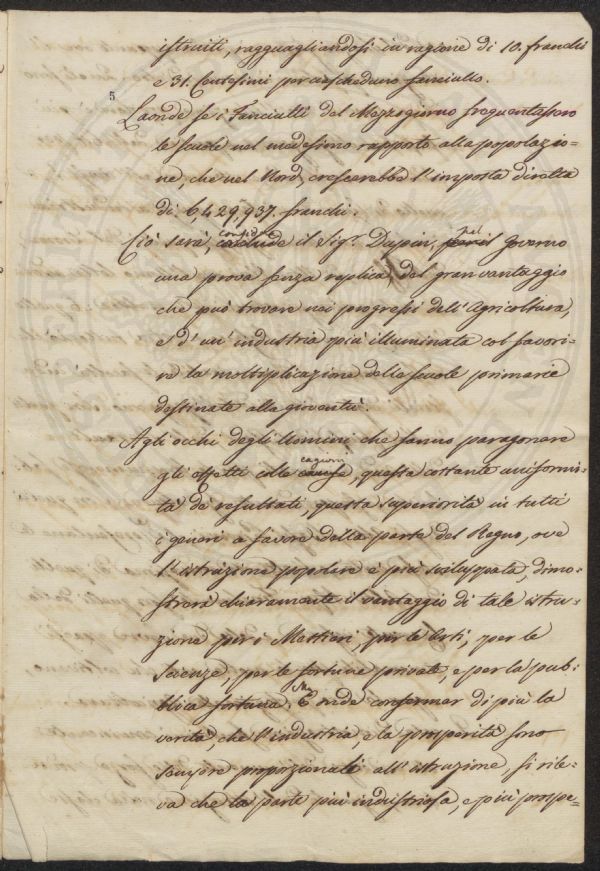 istruiti, ragguagliandosi in ragione di 10. franchi
e 31. Centesimi per ciascheduno fanciullo.
5
Laonde se i Fanciulli del Mezzogiorno frequentassero
le scuole nel medesimo rapporto alla popolazio=
ne, che nel Nord, crescerebbe l'imposta diretta
di 6,429,937. franchi.
Ciò sarà, conclude il Sig.r Dupin, pel Governo
una prova senza replica, del gran vantaggio
che può trovare nei progressi dell'Agricoltura,
e d'un'industria più illuminata col favori=
re la moltiplicazione delle scuole primarie
destinate alla gioventù.
Agli occhi degli Uomini che sanno paragonare
gli effetti colle cagioni, questa costante uniformi=
tà de' resultati, questa superiorità in tutti
i generi a favore della parte del Regno, ove
l'istruzione popolare è più sviluppata, dimo=
strerà chiaramente il vantaggio di tale istru=
zione per i Mestieri, per le Arti, per le
Scienze, per le fortune private, e per la pub=
blica fortuna. E onde confermar di più la
verità, che l'industria, e la prosperità sono
sempre proporzionali all'istruzione, si rile=
va che la parte più industriosa, e più prospe=